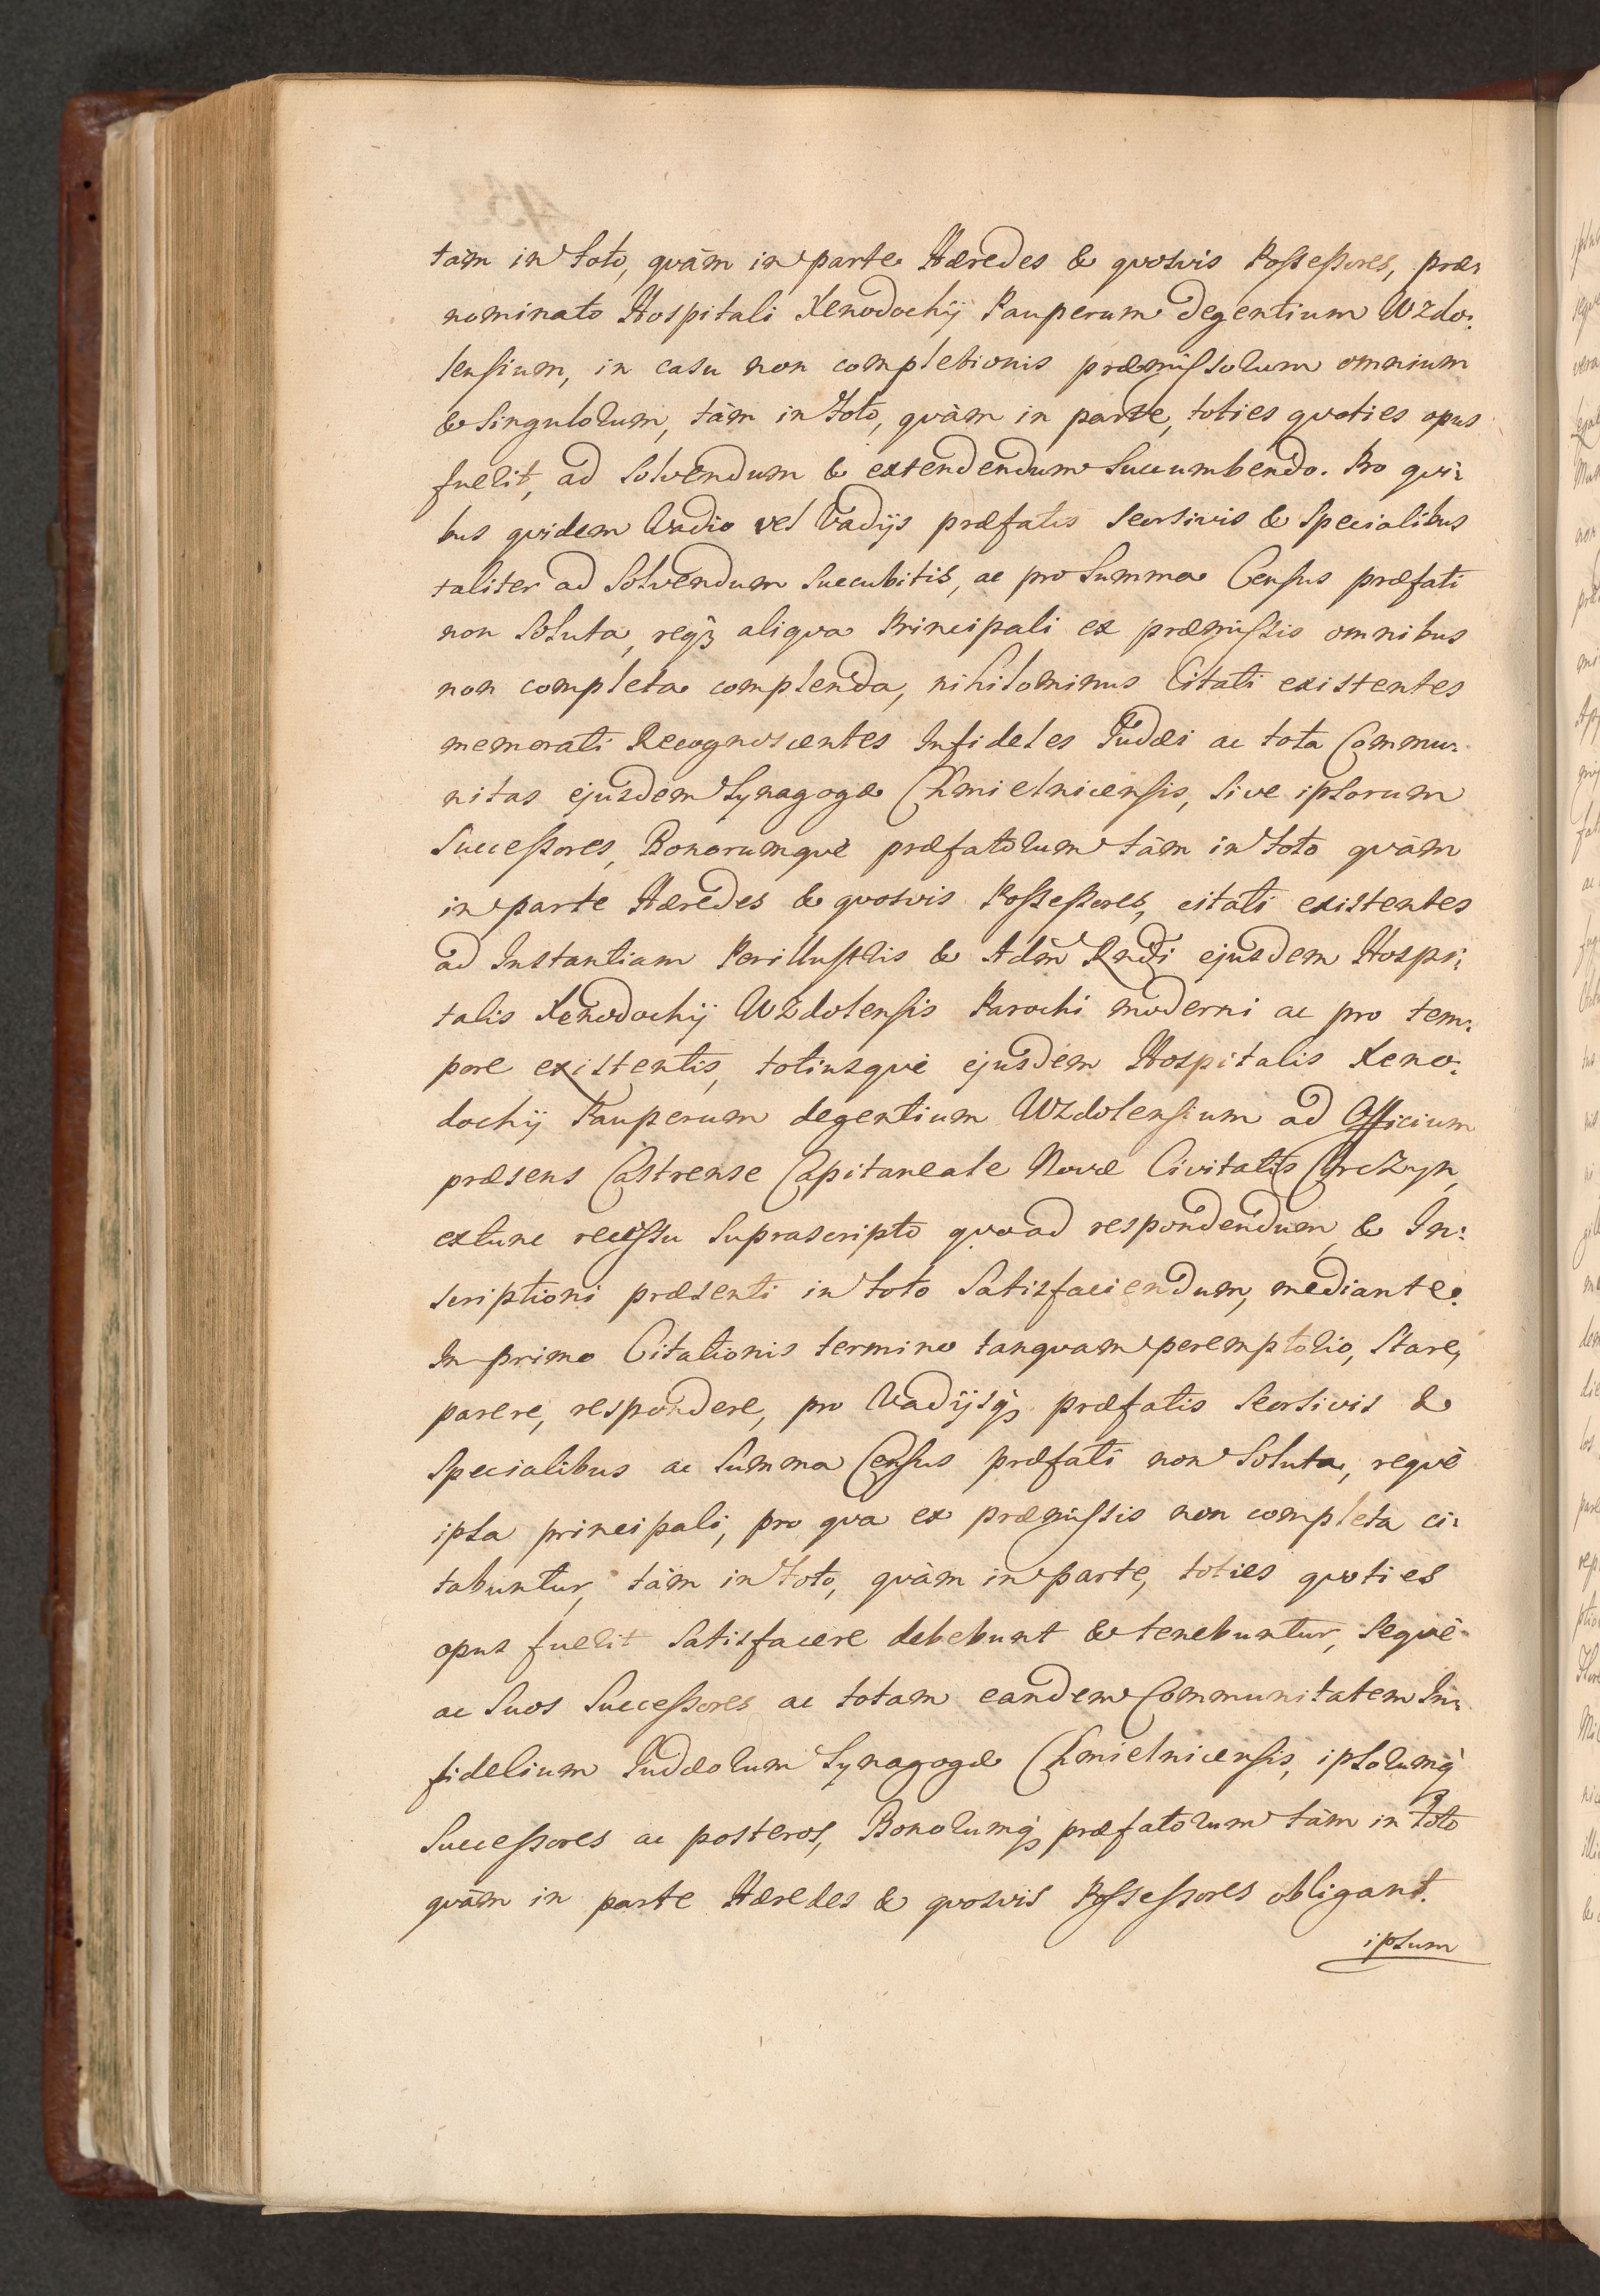 tàm in toto, quàm in parte Hæredes & quosvis Possessores, præ:
nominato Hospitali Xenodochij Pauperum degentium Wzdo:
lensium, in casu non completionis præmissorum omnium
& Singulorum, tàm in toto, quàm in parte, toties quoties opus
fuerit, ad Solvendum & extendendum Succumbendo. Pro qui:
bus quidem Vadio vel Vadijs præfatis Seorsivis & Specialibus
taliter ad Solvendum Succubitis, ac pro Summa Census præfati
non Soluta, reqꝫ aliqua Principali ex præmissis omnibus
non completa complenda, nihilominus Citati existentes
memorati Recognoscentes Infideles Judæi ac tota Commu:
nitas ejusdem Synagogæ Chmielnicensis, Sive ipsorum
Successores, Bonorumquè præfatorum tàm in toto quàm
in parte Hæredes & quosvis Possessores, citati existentes
ad Instantiam Perillustris & Adm̃ Rndi ejusdem Hospi:
talis Xenodochij Wzdolensis Parochi moderni ac pro tem:
pore existentis, totiusquè ejusdem Hospitalis Xeno:
dochij Pauperum degentium Wzdolensium ad Officium
præsens Castrense Capitaneale Novæ Civitatis Corczyn,
extunc recessu Suprascripto quoad respondendum, & In:
scriptioni præsenti in toto Satisfaciendum, mediante.
In primo Citationis termino tanquam peremptorio, Stare,
parere, respondere, pro Vadijsqꝫ præfatis Seorsivis &
Specialibus ac Summa Census præfati non Soluta, requè
ipsa principali, pro qua ex præmissis non completa ci:
tabuntur, tàm in toto, quàm in parte, toties quoties
opus fuerit Satisfacere debebunt & tenebuntur, Sequè
ac Suos Successores ac totam eandem Communitatem In:
fidelium Judæorum Synagogæ Chmielnicensis, ipsorumqꝫ
Successores ac posteros, Bonorumqꝫ præfatorum tàm in toto
quàm in parte Hæredes & quosvis Possessores obligant.
ipsum